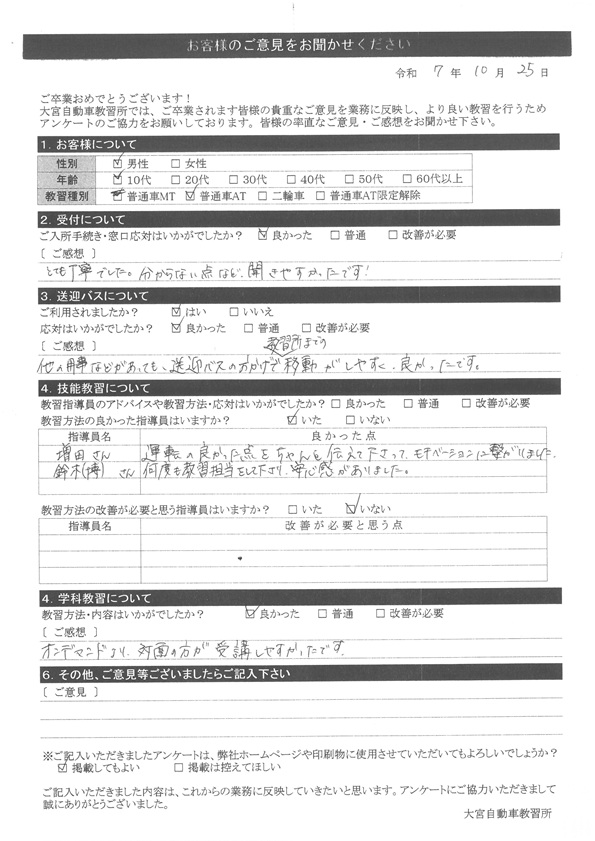 お客様のご意見をお聞かせください
令和 7 年 10 月 25 日
ご卒業おめでとうございます！
大宮自動車教習所では、ご卒業されます皆様の貴重なご意見を業務に反映し、より良い教習を行うため
アンケートのご協力をお願いしております。皆様の率直なご意見・ご感想をお聞かせ下さい。
1. お客様について
性別 ☑ 男性 □ 女性
年齢 ☑ 10代 □ 20代 □ 30代 □ 40代 □ 50代 □ 60代以上
教習種別 □ 普通車MT ☑ 普通車AT □ 二輪車 □ 普通車AT限定解除
2. 受付について
ご入所手続き・窓口応対はいかがでしたか？ ☑ 良かった □ 普通 □ 改善が必要
[ ご感想 ]
とても丁寧でした。分からない点など、聞きやすかったです！
3. 送迎バスについて
ご利用されましたか？ ☑ はい □ いいえ
応対はいかがでしたか？ ☑ 良かった □ 普通 □ 改善が必要
[ ご感想 ] 教習所までの
他の用事などがあっても、送迎バスのおかげで移動がしやすく、良かったです。
4. 技能教習について
教習指導員のアドバイスや教習方法・応対はいかがでしたか？ □ 良かった □ 普通 □ 改善が必要
教習方法の良かった指導員はいますか？ ☑ いた □ いない
指導員名 良かった点
増田さん 運転の良かった点をちゃんと伝えて下さって、モチベーションに繋がりました。
鈴木(博)さん 何度も教習担当をして下さり、安心感がありました。
教習方法の改善が必要と思う指導員はいますか？ □ いた ☑ いない
指導員名 改善が必要と思う点
4. 学科教習について
教習方法・内容はいかがでしたか？ ☑ 良かった □ 普通 □ 改善が必要
[ ご感想 ]
オンデマンドより、対面の方が受講しやすかったです。
6. その他、ご意見等ございましたらご記入下さい
[ ご意見 ]
※ご記入いただきましたアンケートは、弊社ホームページや印刷物に使用させていただいてもよろしいでしょうか？
☑ 掲載してもよい □ 掲載は控えてほしい
ご記入いただきました内容は、これからの業務に反映していきたいと思います。アンケートにご協力いただきまして
誠にありがとうございました。
大宮自動車教習所